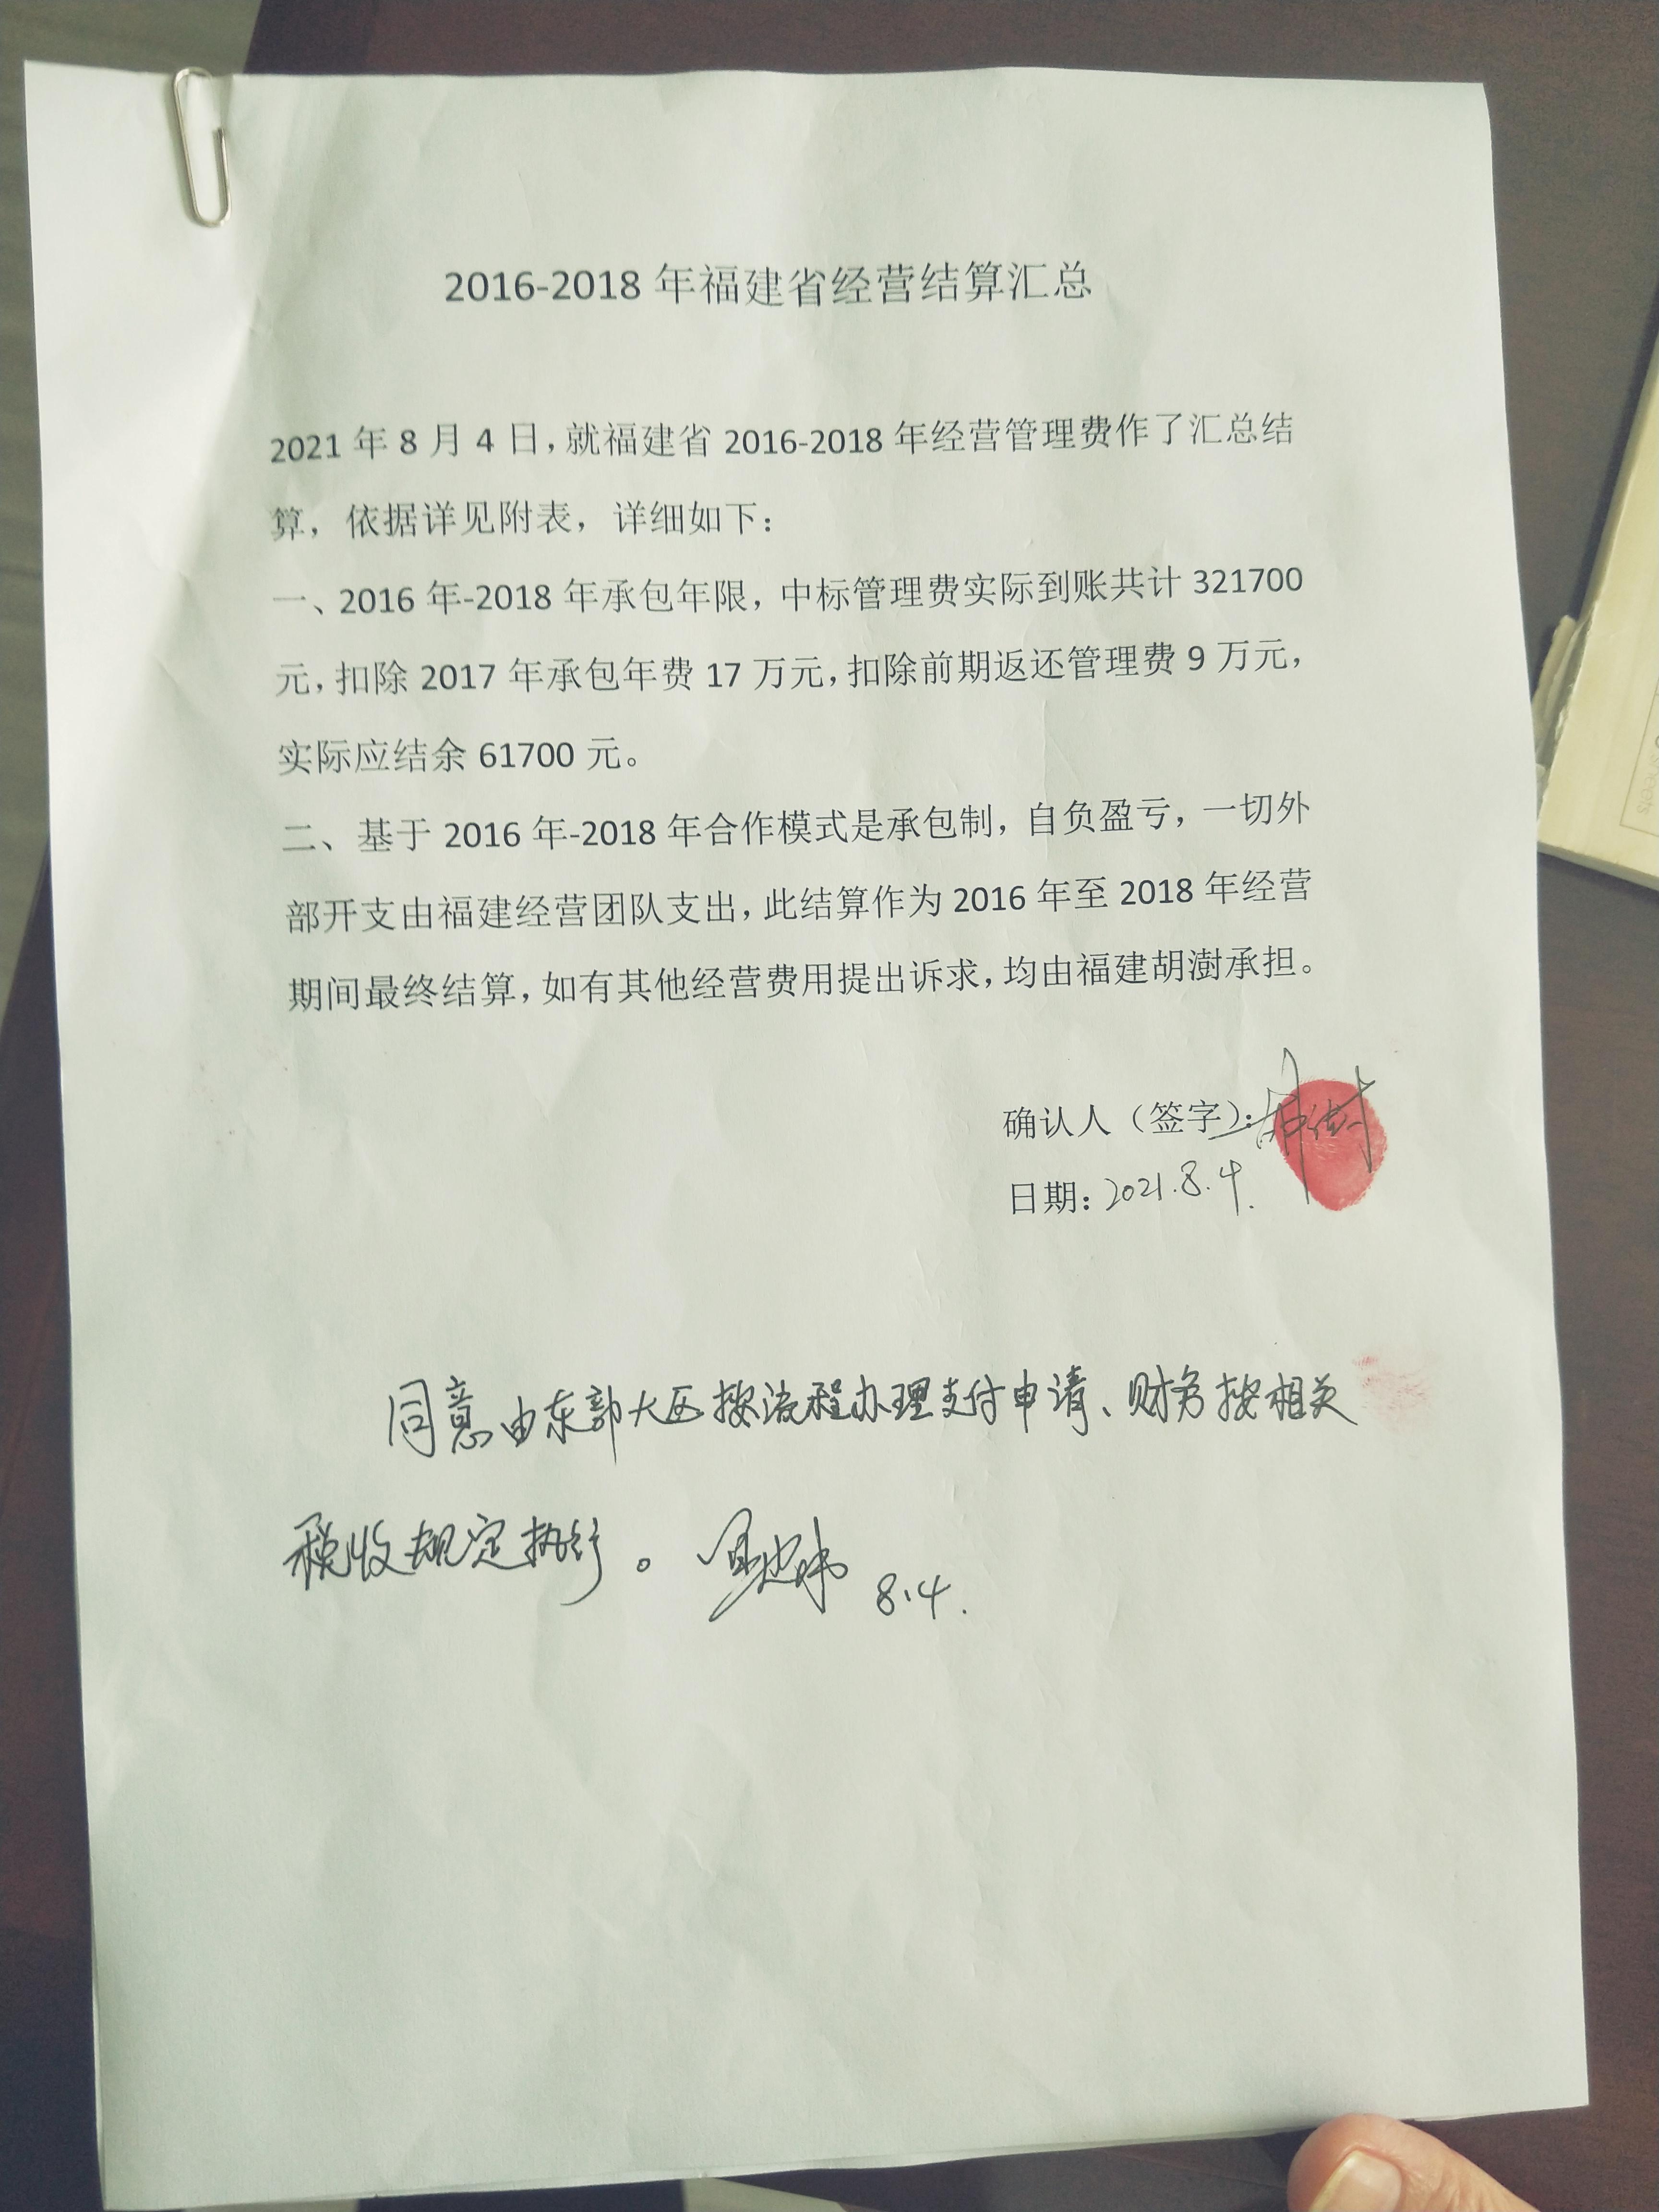 2016-2018 年福建省经营结算汇总
2021 年 8 月 4 日，就福建省 2016-2018 年经营管理费作了汇总结
算，依据详见附表，详细如下：
一、2016 年-2018 年承包年限，中标管理费实际到账共计 321700
元，扣除 2017 年承包年费 17 万元，扣除前期返还管理费 9 万元，
实际应结余 61700 元。
二、基于 2016 年-2018 年合作模式是承包制，自负盈亏，一切外
部开支由福建经营团队支出，此结算作为 2016 年至 2018 年经营
期间最终结算，如有其他经营费用提出诉求，均由福建胡澍承担。
确认人（签字）：
日期：2021.8.4.
同意由东部大区按流程办理支付申请、财务按相关
税收规定执行。 8.4.